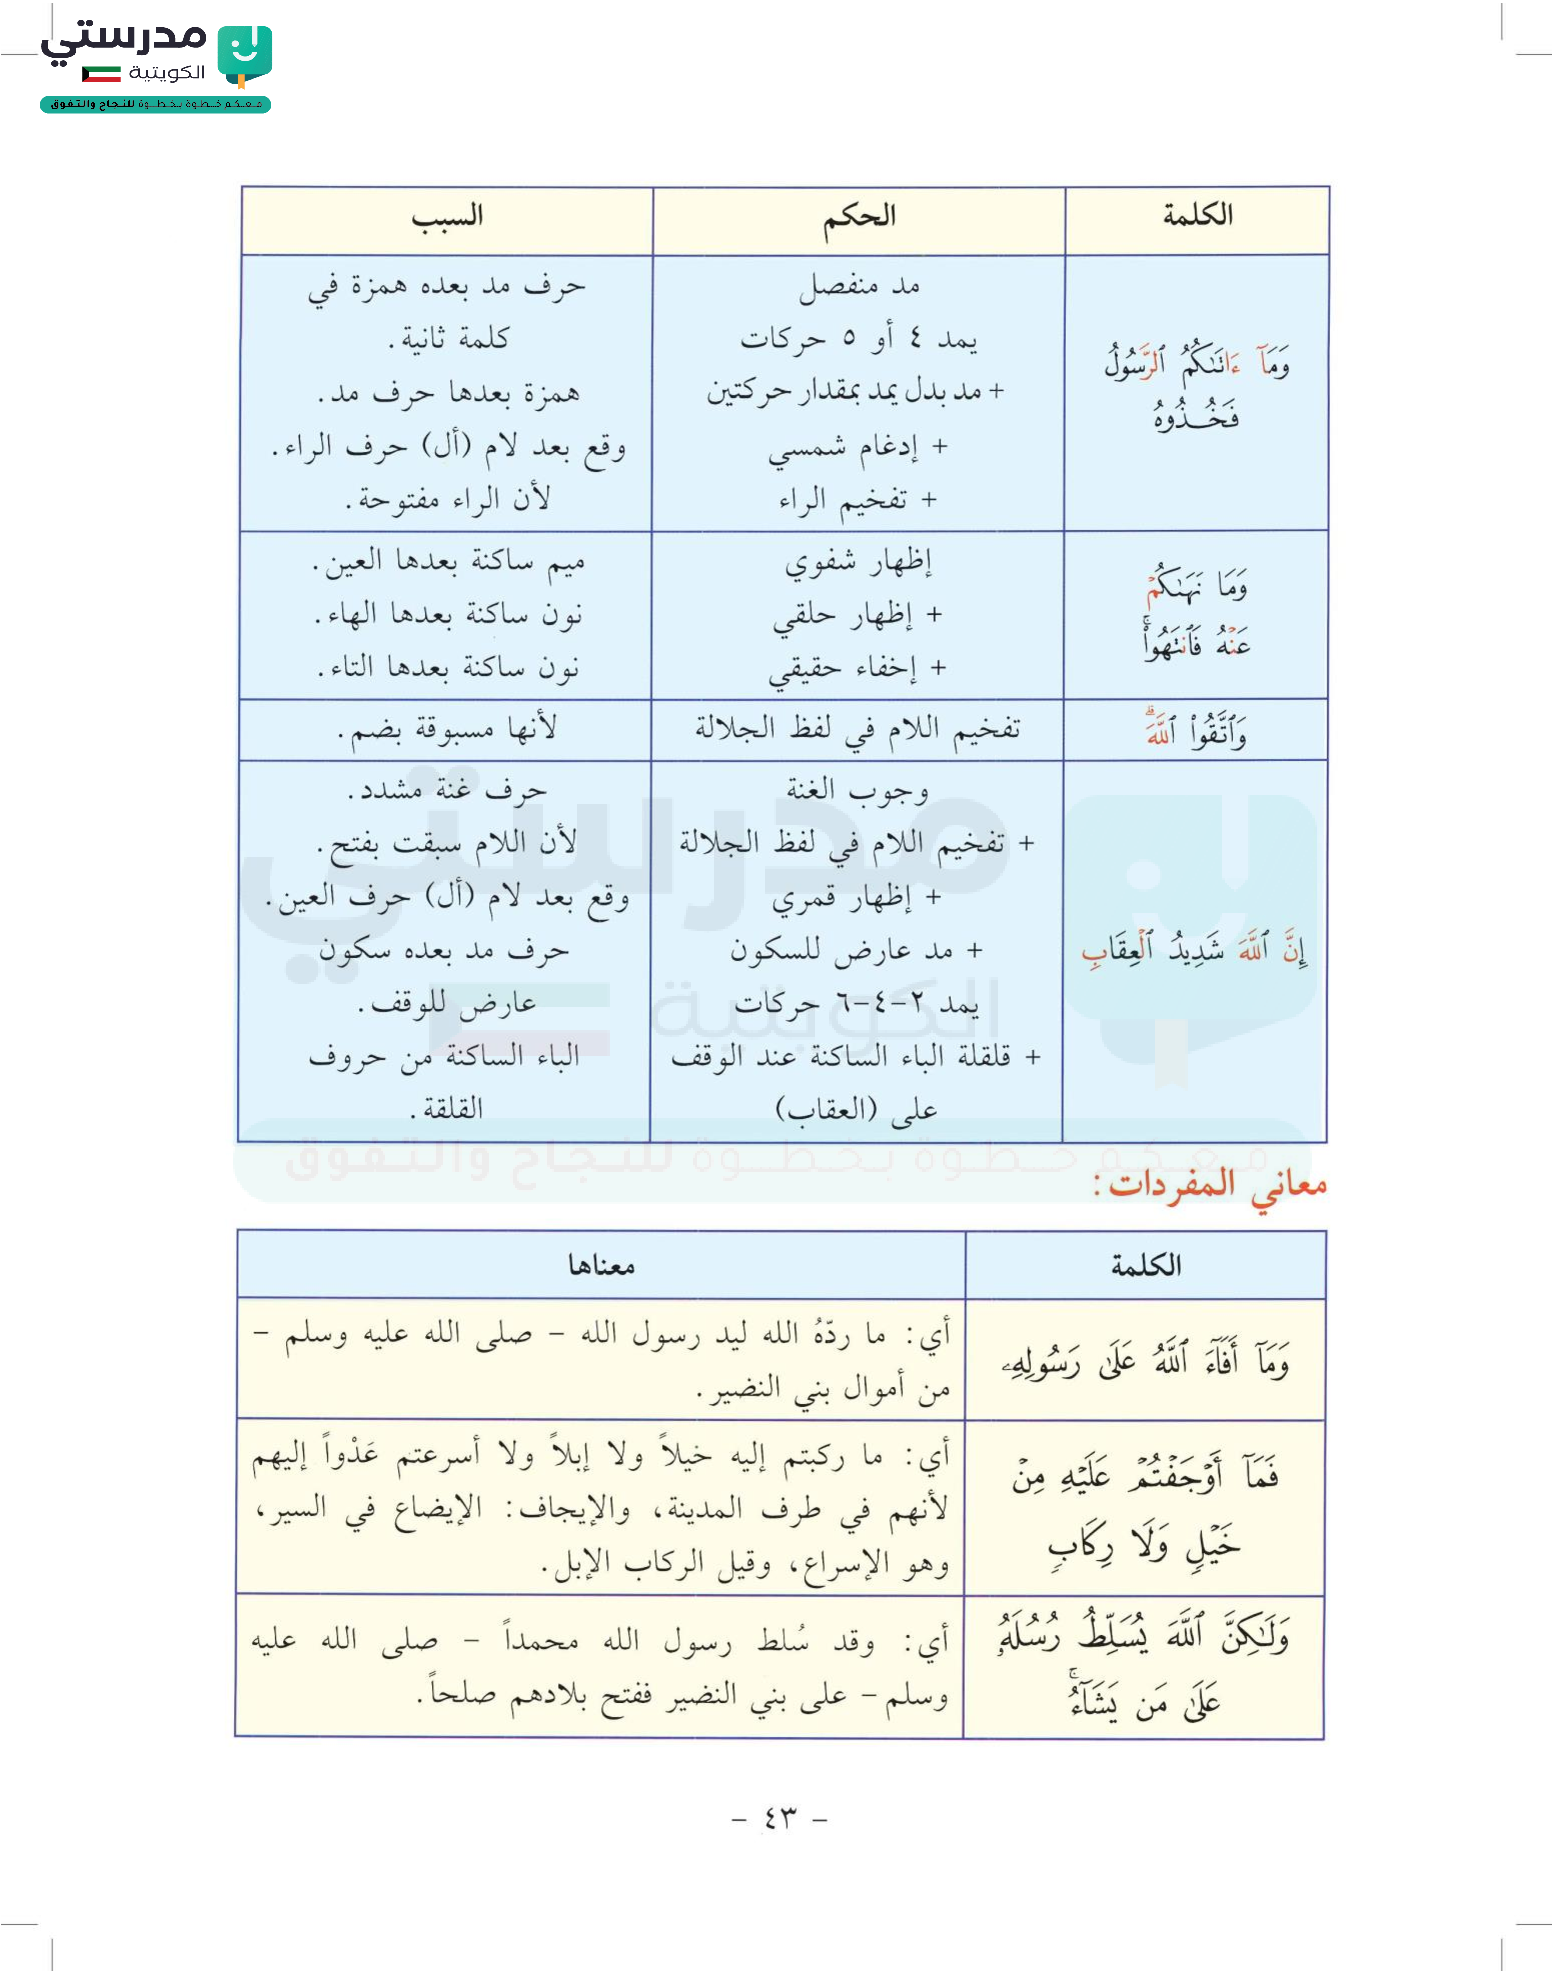 مدرستي
الكويتية
معكم خطوة بخطوة للنجاح والتفوق
الكلمة الحكم السبب
وَمَآ ءَاتَىٰكُمُ ٱلرَّسُولُ
فَخُذُوهُ
مد منفصل
يمد ٤ أو ٥ حركات
+ مد بدل يمد بمقدار حركتين
+ إدغام شمسي
+ تفخيم الراء
حرف مد بعده همزة في
كلمة ثانية.
همزة بعدها حرف مد.
وقع بعد لام (أل) حرف الراء.
لأن الراء مفتوحة.
وَمَا نَهَىٰكُمْ
عَنْهُ فَٱنتَهُوا۟ۚ
إظهار شفوي
+ إظهار حلقي
+ إخفاء حقيقي
ميم ساكنة بعدها العين.
نون ساكنة بعدها الهاء.
نون ساكنة بعدها التاء.
وَٱتَّقُوا۟ ٱللَّهَۖ
تفخيم اللام في لفظ الجلالة
لأنها مسبوقة بضم.
إِنَّ ٱللَّهَ شَدِيدُ ٱلْعِقَابِ
وجوب الغنة
+ تفخيم اللام في لفظ الجلالة
+ إظهار قمري
+ مد عارض للسكون
يمد ٢-٤-٦ حركات
+ قلقلة الباء الساكنة عند الوقف
على (العقاب)
حرف غنة مشدد.
لأن اللام سبقت بفتح.
وقع بعد لام (أل) حرف العين.
حرف مد بعده سكون
عارض للوقف.
الباء الساكنة من حروف
القلقة.
مدرستي
الكويتية
معكم خطوة بخطوة للنجاح والتفوق
معاني المفردات:
الكلمة معناها
وَمَآ أَفَآءَ ٱللَّهُ عَلَىٰ رَسُولِهِۦ
أي: ما ردّهُ الله ليد رسول الله – صلى الله عليه وسلم –
من أموال بني النضير.
فَمَآ أَوْجَفْتُمْ عَلَيْهِ مِنْ
خَيْلٍ وَلَا رِكَابٍ
أي: ما ركبتم إليه خيلاً ولا إبلاً ولا أسرعتم عَدْواً إليهم
لأنهم في طرف المدينة، والإيجاف: الإيضاع في السير،
وهو الإسراع، وقيل الركاب الإبل.
وَلَٰكِنَّ ٱللَّهَ يُسَلِّطُ رُسُلَهُۥ
عَلَىٰ مَن يَشَآءُۚ
أي: وقد سُلط رسول الله محمداً – صلى الله عليه
وسلم – على بني النضير ففتح بلادهم صلحاً.
- ٤٣ -